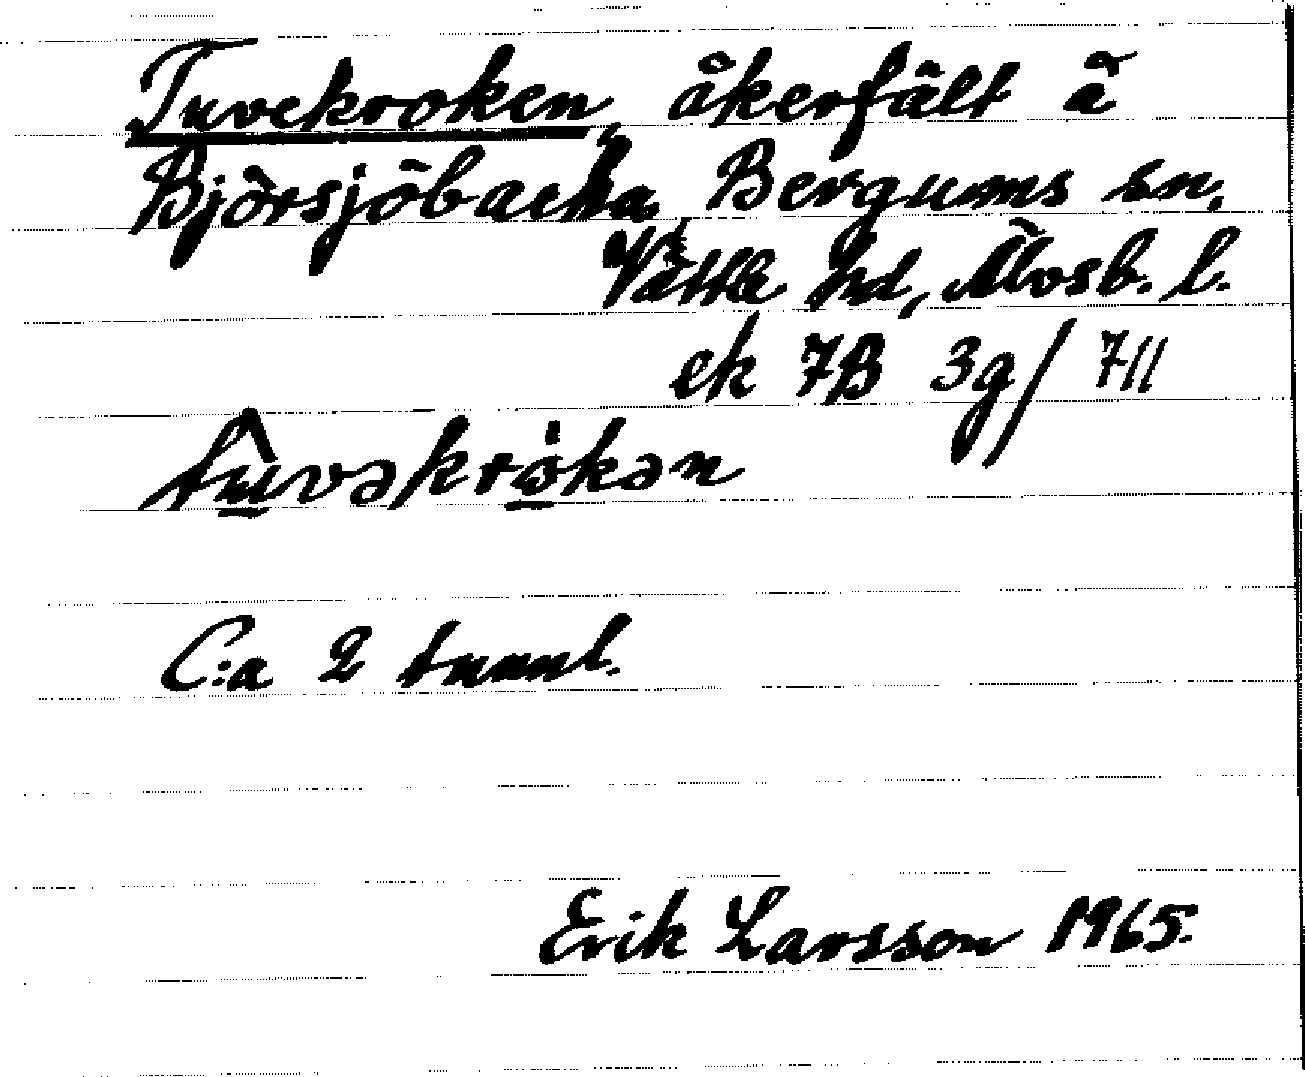 Tuvekroken, åkerfält å
Björsjöbacka, Bergums sn,
Vättle hd, Älvsb. l.
ek 7B 3g/ 711
tuvəkrokən
C:a 2 tunnl.
Erik Larsson 1965.